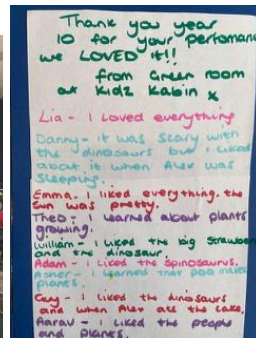 Thank you year
10 for your perfoman
we LOVED it!!
from Green room
at Kidz Kabin x
Lia - I Loved everything
Danny - it was scary with
the dinosaurs but i liked
about it when Alex was
sleeping...
Emma - I liked everything. the
was pretty.
Theo - I learned about plants
growing.
William - I liked the big strawber
and the dinosaur.
Adam - I liked the spinosaurus.
Asher - I learned that poo makes
plants.
Guy - I liked the dinosaurs
and when Alex ate the cake.
Aarav - I liked the people
and plants.